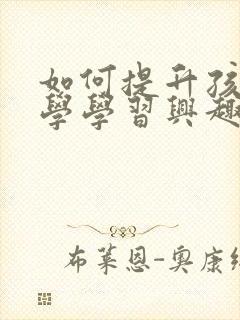 如何提升孩
學學習興趣
布萊恩-奧康